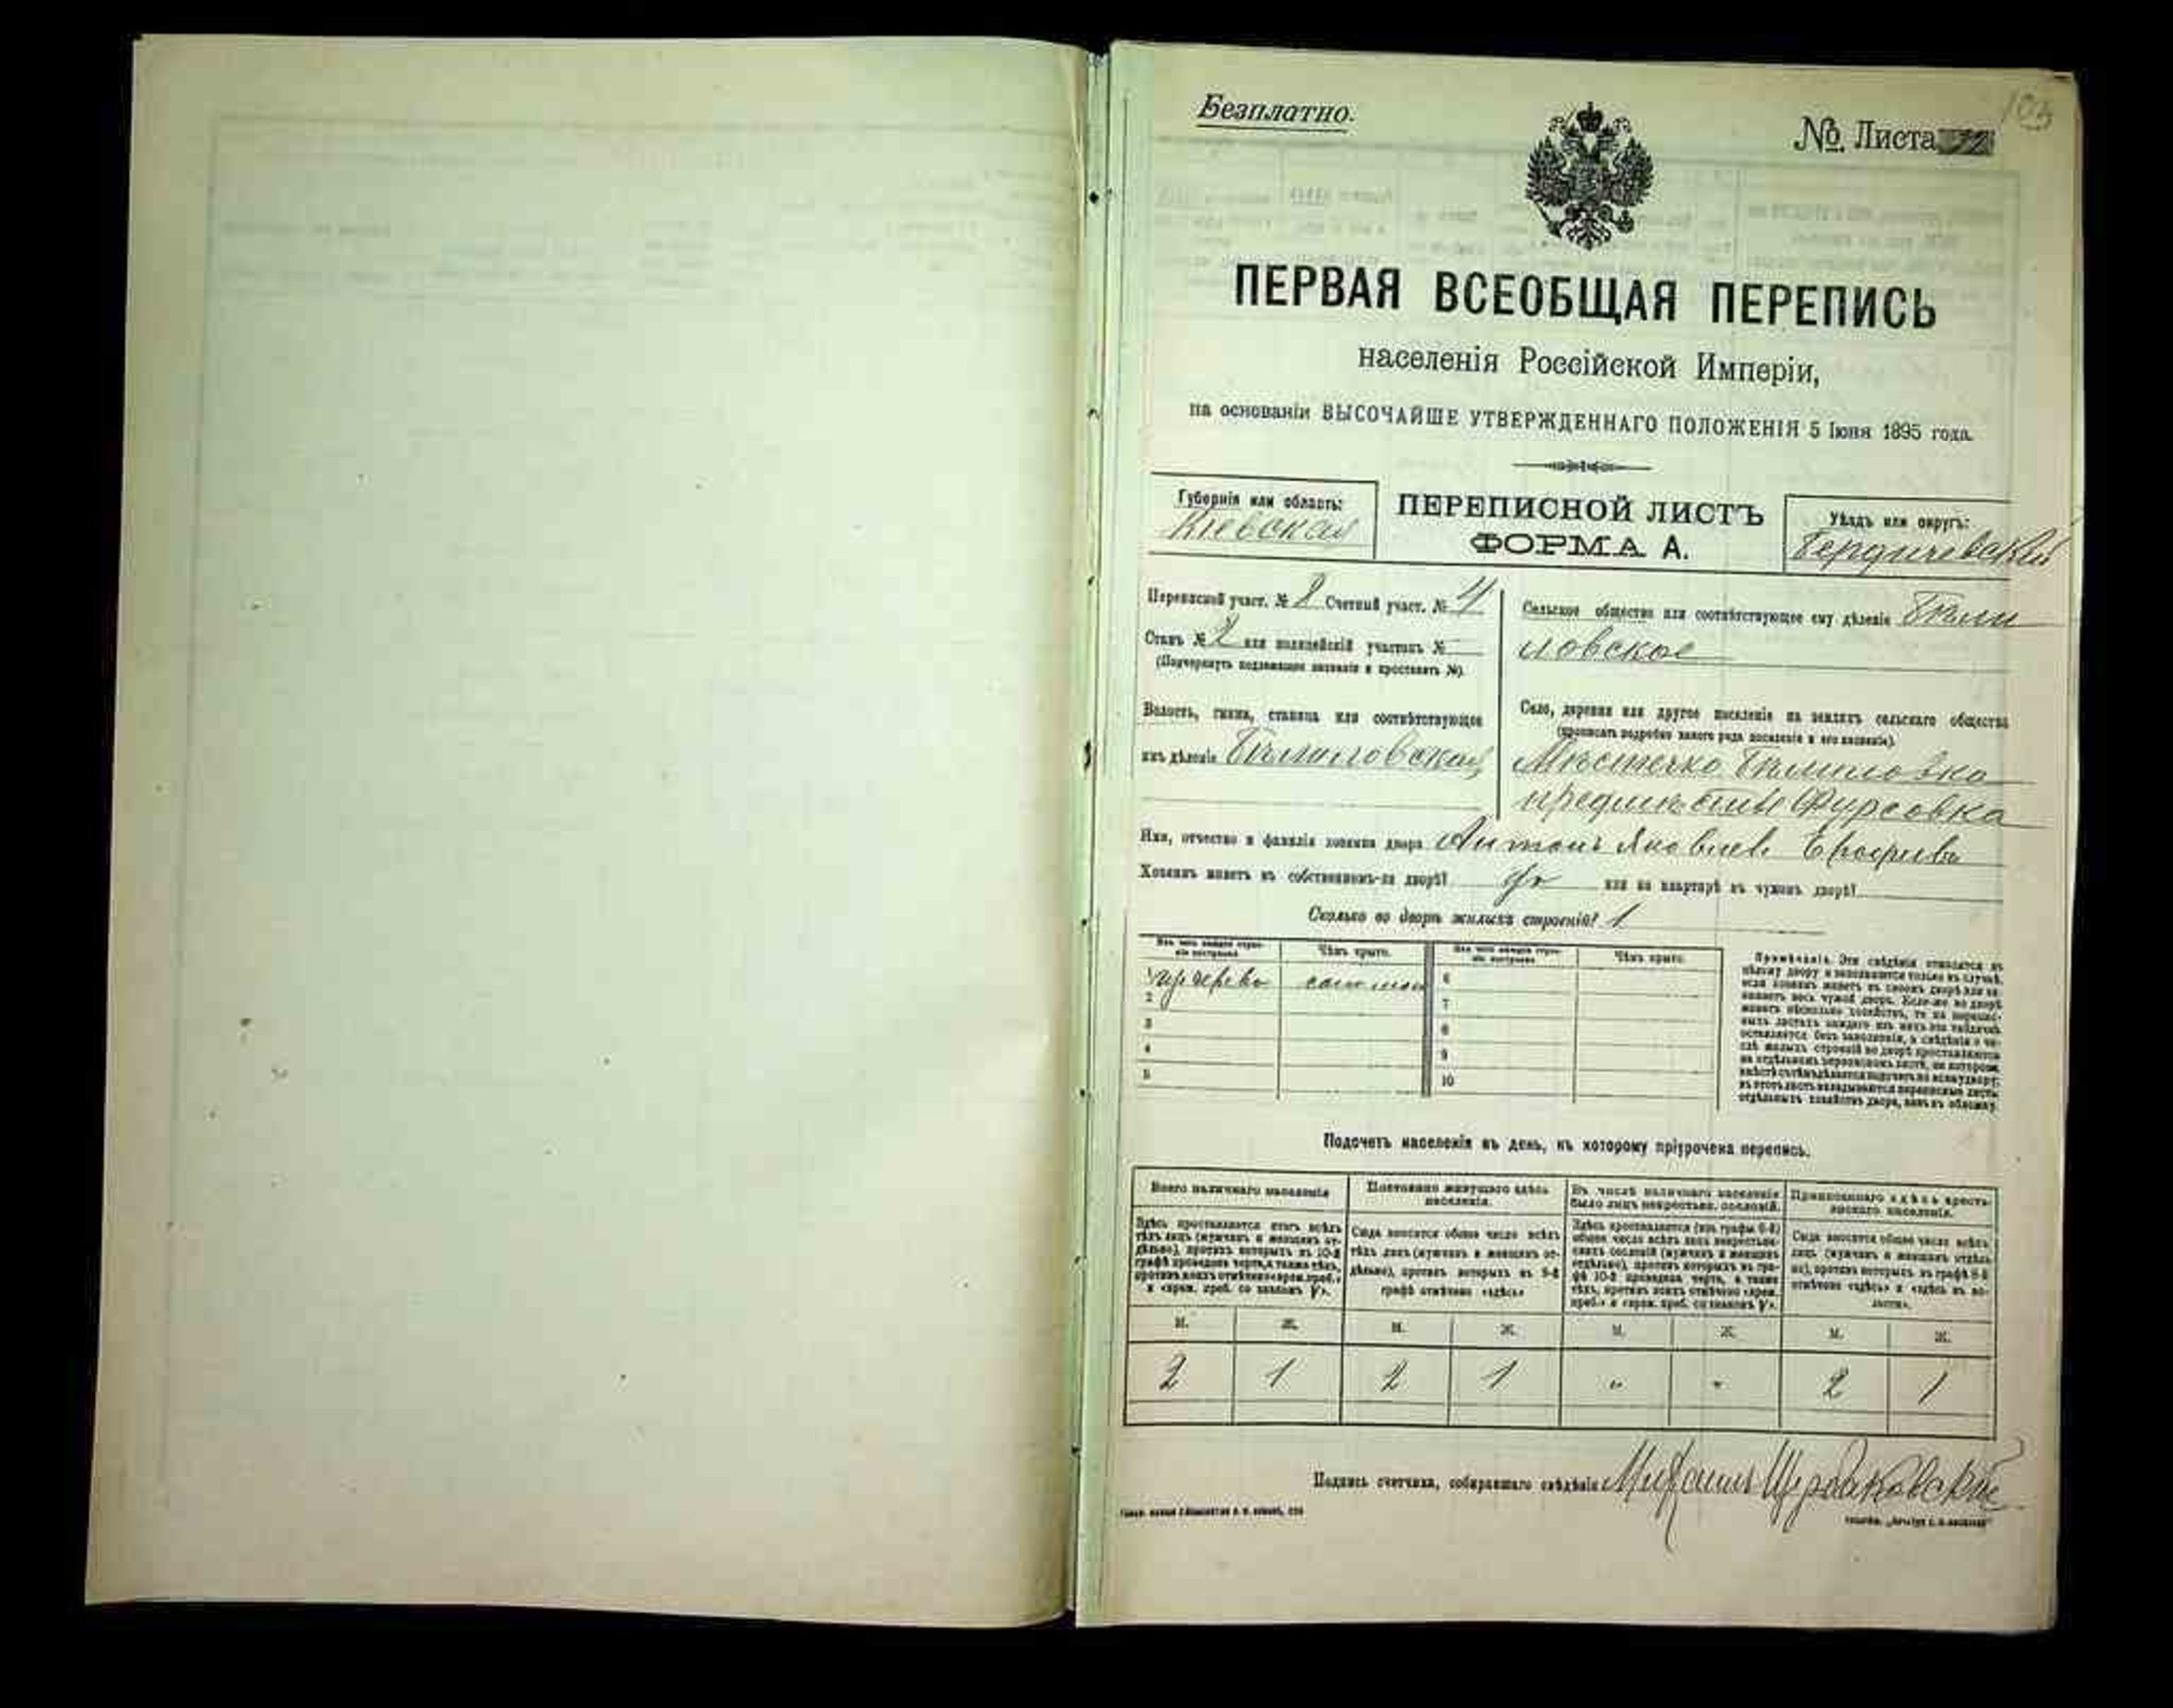 Безплатно.
№ Листа 32
103
ПЕРВАЯ ВСЕОБЩАЯ ПЕРЕПИСЬ
населенія Россійской Имперіи,
на основаніи ВЫСОЧАЙШЕ УТВЕРЖДЕННАГО ПОЛОЖЕНІЯ 5 Іюня 1895 года.
Губернія или область:
Кіевская
ПЕРЕПИСНОЙ ЛИСТЪ
ФОРМА А.
Уѣздъ или округъ:
Бердичевскій
Переписной участ. № 8 Счетный участ. № 4
Станъ № 2 или полицейскій участокъ №
(Подчеркнуть подлежащее названіе и проставить №).
Волость, гмина, станица или соотвѣтствующее
имъ дѣленіе Бѣлиловская
Сельское общество или соотвѣтствующее ему дѣленіе Бѣли
ловское
Село, деревня или другое поселеніе на земляхъ сельскаго общества
(прописать подробно какого рода поселеніе и его названіе).
Мѣстечко Бѣлиловка
предмѣстье Фурсовка
Имя, отчество и фамилія хозяина двора Антонъ Яковлевъ
Хозяинъ живетъ въ собственномъ-ли дворѣ? да или на квартирѣ въ чужомъ дворѣ?
Сколько во дворѣ жилыхъ строеній? 1
Изъ чего каждое строе-
ніе построено.
Чѣмъ крыто.
Изъ чего каждое строе-
ніе построено.
Чѣмъ крыто.
1 изъ дерева соломой 6
2 7
3 8
4 9
5 10
Примѣчаніе. Эти свѣдѣнія относятся къ
цѣлому двору и заполняются только въ случаѣ,
если хозяинъ живетъ въ своемъ дворѣ или за-
нимаетъ весь чужой дворъ. Если-же во дворѣ
живетъ нѣсколько хозяйствъ, то на перепис-
ныхъ листахъ каждаго изъ нихъ эта табличка
оставляется безъ заполненія, а свѣдѣнія о чи-
слѣ жилыхъ строеній во дворѣ проставляются
на отдѣльномъ переписномъ листѣ, на которомъ
вмѣстѣ съ тѣмъ дѣлается подсчетъ по всему двору;
въ этотъ листъ вкладываются переписные листы
отдѣльныхъ хозяйствъ двора, какъ въ обложку.
Подсчетъ населенія въ день, къ которому пріурочена перепись.
Всего наличнаго населенія
Здѣсь проставляется итогъ всѣхъ
тѣхъ лицъ (мужчинъ и женщинъ от-
дѣльно), противъ которыхъ въ 10-й
графѣ проведена черта, а также тѣхъ,
противъ коихъ отмѣчено «врем. преб.»
и «врем. преб. со знакомъ V».
Постоянно живущаго здѣсь
населенія.
Сюда вносится общее число всѣхъ
тѣхъ лицъ (мужчинъ и женщинъ от-
дѣльно), противъ которыхъ въ 9-й
графѣ отмѣчено «здѣсь»
Въ числѣ наличнаго населенія
было лицъ некрестьян. сословій.
Здѣсь проставляется (изъ графы 6-й)
общее число всѣхъ лицъ некрестьян-
скихъ сословій (мужчинъ и женщинъ
отдѣльно), противъ которыхъ въ гра-
фѣ 10-й проведена черта, а также
тѣхъ, противъ коихъ отмѣчено «врем.
преб.» и «врем. преб. со знакомъ V».
Приписаннаго здѣсь кресть-
янскаго населенія.
Сюда вносится общее число всѣхъ
лицъ (мужчинъ и женщинъ отдѣль-
но), противъ которыхъ въ графѣ 8-й
отмѣчено «здѣсь» и «здѣсь въ во-
лости».
М. Ж. М. Ж. М. Ж. М. Ж.
2 1 2 1 " " 2 1
Подпись счетчика, собиравшаго свѣдѣнія Михаилъ Щербаковскій